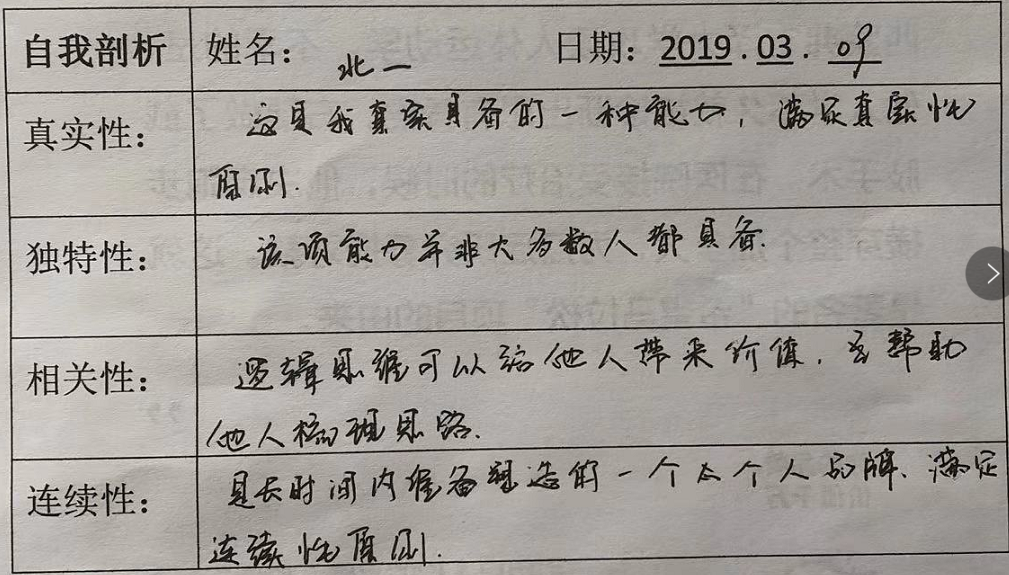 自我剖析 姓名: 北一 日期: 2019.03.09
真实性: 这是我真实具备的一种能力,满足真实性
原则.
独特性: 该项能力并非大多数人都具备.
相关性: 逻辑思维可以给他人带来价值,去帮助
他人梳理思路.
连续性: 是长时间内准备塑造的一个 个人品牌、满足
连续性原则.